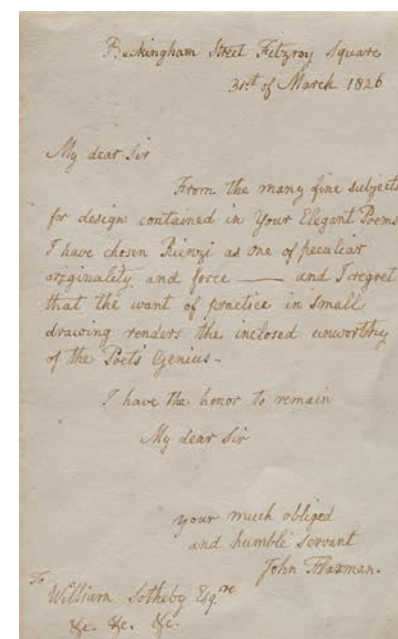 Buckingham Street Fitzroy Square
31st of March 1826
My dear Sir
From the many fine subjects
for design contained in Your Elegant Poems
I have chosen Rienzi as one of peculiar
originality and force — and I regret
that the want of practice in small
drawing renders the inclosed unworthy
of the Poets Genius -
I have the honor to remain
My dear Sir
your much obliged
and humble servant
John Flaxman.
To
William Sotheby Esqre
&c. &c. &c.